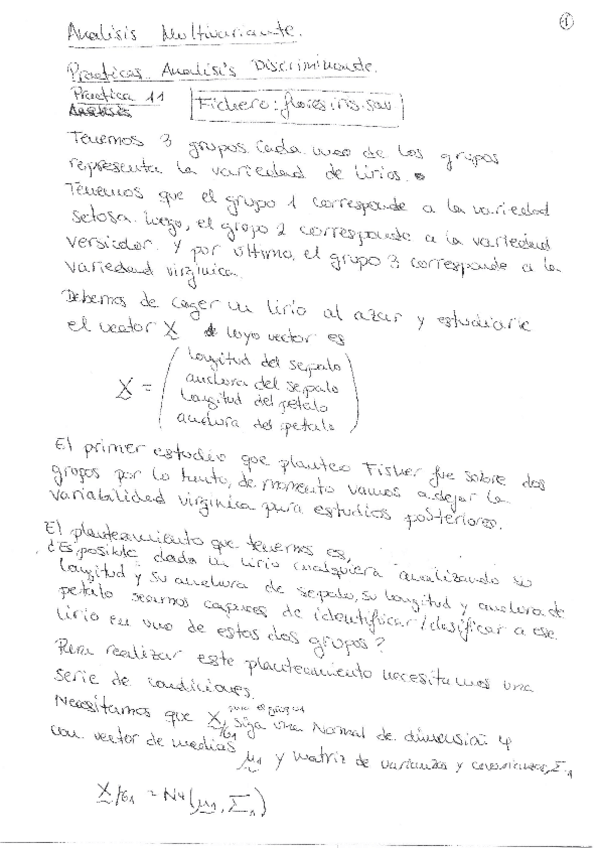 1
Analisis Multivariante.
Practicas Analisis Discriminante.
Practica 11
Analisis
Fichero: floresiris.sav
Tenemos 3 grupos. Cada uno de los grupos
representa la variedad de lirios.
Tenemos que el grupo 1 corresponde a la variedad
setosa. Luego, el grupo 2 corresponde a la variedad
versicolor. Y por último, el grupo 3 corresponde a la
variedad virginica.
Debemos de coger un lirio al azar y estudiarle
el vector X cuyo vector es
X = ( longitud del sepalo
anchura del sepalo
longitud del petalo
anchura del petalo )
El primer estudio que planteo Fisher fue sobre dos
grupos por lo tanto, de momento vamos a dejar la
variabilidad virginica para estudios posteriores.
El planteamiento que tenemos es,
¿Es posible dado un lirio cualquiera analizando su
longitud y su anchura de sepalo, su longitud y anchura de
petalo seamos capaces de identificar/clasificar a ese
lirio en uno de estos dos grupos?
Para realizar este planteamiento necesitamos una
serie de condiciones.
Necesitamos que X/G1 para el grupo 1 siga una Normal de dimension 4
con vector de medias μ1 y matriz de varianzas y covarianzas, Σ1
X/G1 = N4(μ1, Σ1)